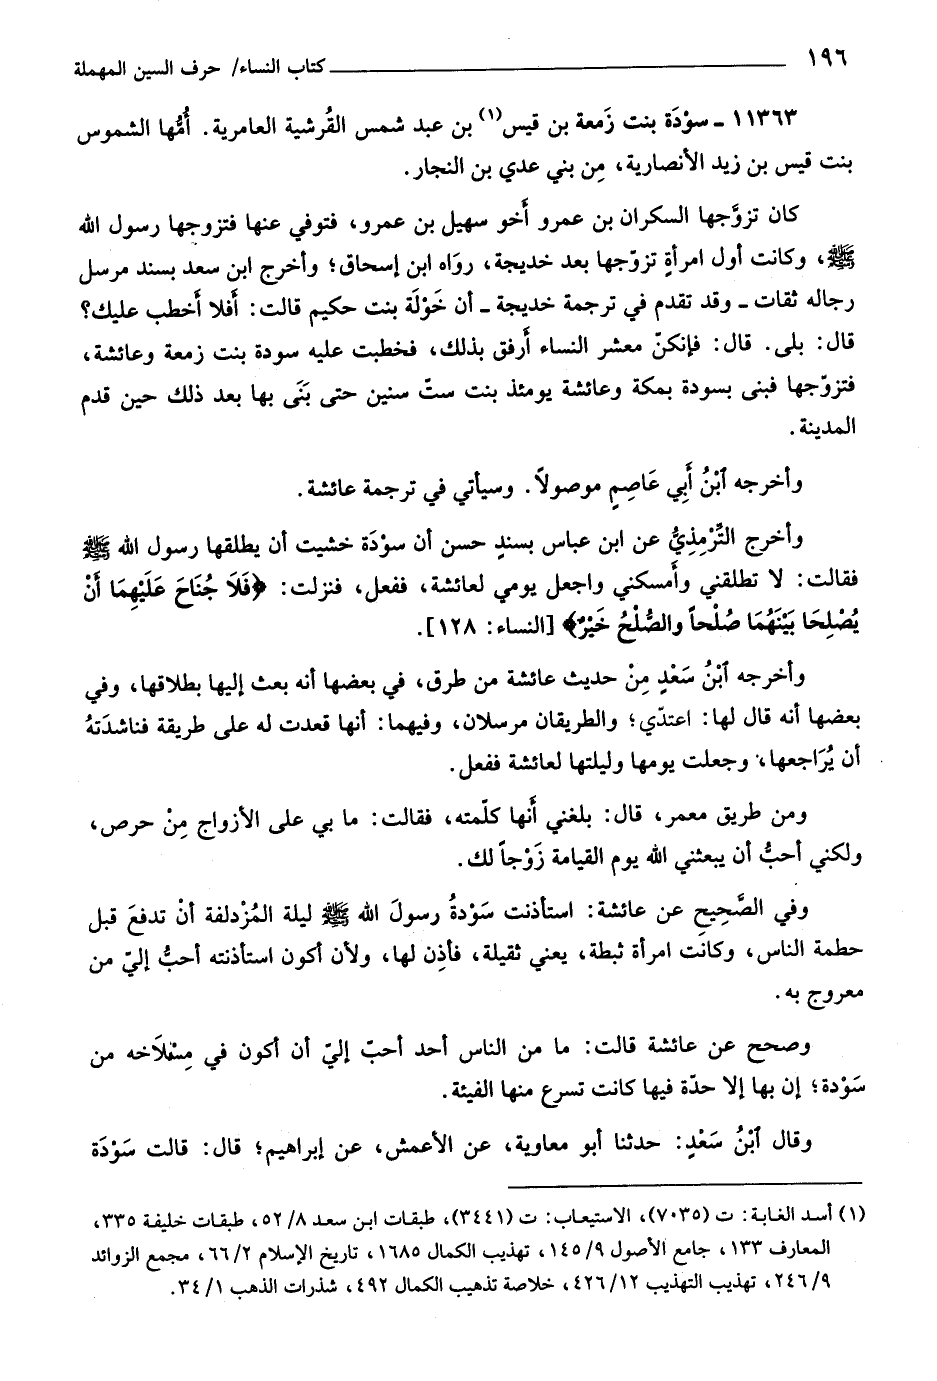 ١٩٦ ــــــــــــــــــــ كتاب النساء/ حرف السين المهملة
١١٣٦٣ ـ سوْدَة بنت زَمعة بن قيس(١) بن عبد شمس القُرشية العامرية. أُمُّها الشموس
بنت قيس بن زيد الأنصارية، مِن بني عدي بن النجار.
كان تزوَّجها السكران بن عمرو أَخو سهيل بن عمرو، فتوفي عنها فتزوجها رسول الله
ﷺ، وكانت أول امرأةٍ تزوّجها بعد خديجة، روَاه ابن إسحاق؛ وأخرج ابن سعد بسند مرسل
رجاله ثقات ـ وقد تقدم في ترجمة خديجة ـ أن خَوْلَة بنت حكيم قالت: أَفلا أَخطب عليك؟
قال: بلى. قال: فإنكنّ معشر النساء أَرفق بذلك، فخطبت عليه سودة بنت زمعة وعائشة،
فتزوّجها فبنى بسودة بمكة وعائشة يومئذ بنت ستّ سنين حتى بَنَى بها بعد ذلك حين قدم
المدينة.
وأخرجه ٱبْنُ أَبِي عَاصِمٍ موصولاً. وسيأتي في ترجمة عائشة.
وأخرج التِّرْمِذِيُّ عن ابن عباس بسندٍ حسن أن سوْدَة خشيت أن يطلقها رسول الله ﷺ
فقالت: لا تطلقني وأَمسكني واجعل يومي لعائشة، ففعل، فنزلت: ﴿فَلَا جُنَاحَ عَلَيْهِمَا أَنْ
يُصْلِحَا بَيْنَهُمَا صُلْحاً والصُّلْحُ خَيْرٌ﴾ [النساء: ١٢٨].
وأخرجه ٱبْنُ سَعْدٍ مِنْ حديث عائشة من طرق، في بعضها أنه بعث إليها بطلاقها، وفي
بعضها أنه قال لها: اعتدّي؛ والطريقان مرسلان، وفيهما: أنها قعدت له على طريقة فناشدَتهُ
أن يُرَاجعها، وجعلت يومها وليلتها لعائشة ففعل.
ومن طريق معمر، قال: بلغني أَنها كلّمته، فقالت: ما بي على الأزواج مِنْ حرص،
ولكني أحبُّ أن يبعثني الله يوم القيامة زَوْجاً لك.
وفي الصَّحِيحِ عن عائشة: استأذنت سَوْدةُ رسولَ الله ﷺ ليلة المُزْدلفة أنْ تدفعَ قبل
حطمة الناس، وكانت امرأة ثبطة، يعني ثقيلة، فأذِن لها، ولأن أكون استأذنته أحبُّ إليّ من
معروج به.
وصحح عن عائشة قالت: ما من الناس أحد أحبّ إليّ أن أكون في مِسْلاَخه من
سَوْدة؛ إن بها إلا حدّة فيها كانت تسرع منها الفيئة.
وقال ٱبْنُ سَعْدٍ: حدثنا أبو معاوية، عن الأعمش، عن إبراهيم؛ قال: قالت سَوْدَة
(١) أسد الغابة: ت (٧٠٣٥)، الاستيعاب: ت (٣٤٤١)، طبقات ابن سعد ٥٢/٨، طبقات خليفة ٣٣٥،
المعارف ١٣٣، جامع الأصول ١٤٥/٩، تهذيب الكمال ١٦٨٥، تاريخ الإسلام ٦٦/٢، مجمع الزوائد
٢٤٦/٩، تهذيب التهذيب ٤٢٦/١٢، خلاصة تذهيب الكمال ٤٩٢، شذرات الذهب ٣٤/١.